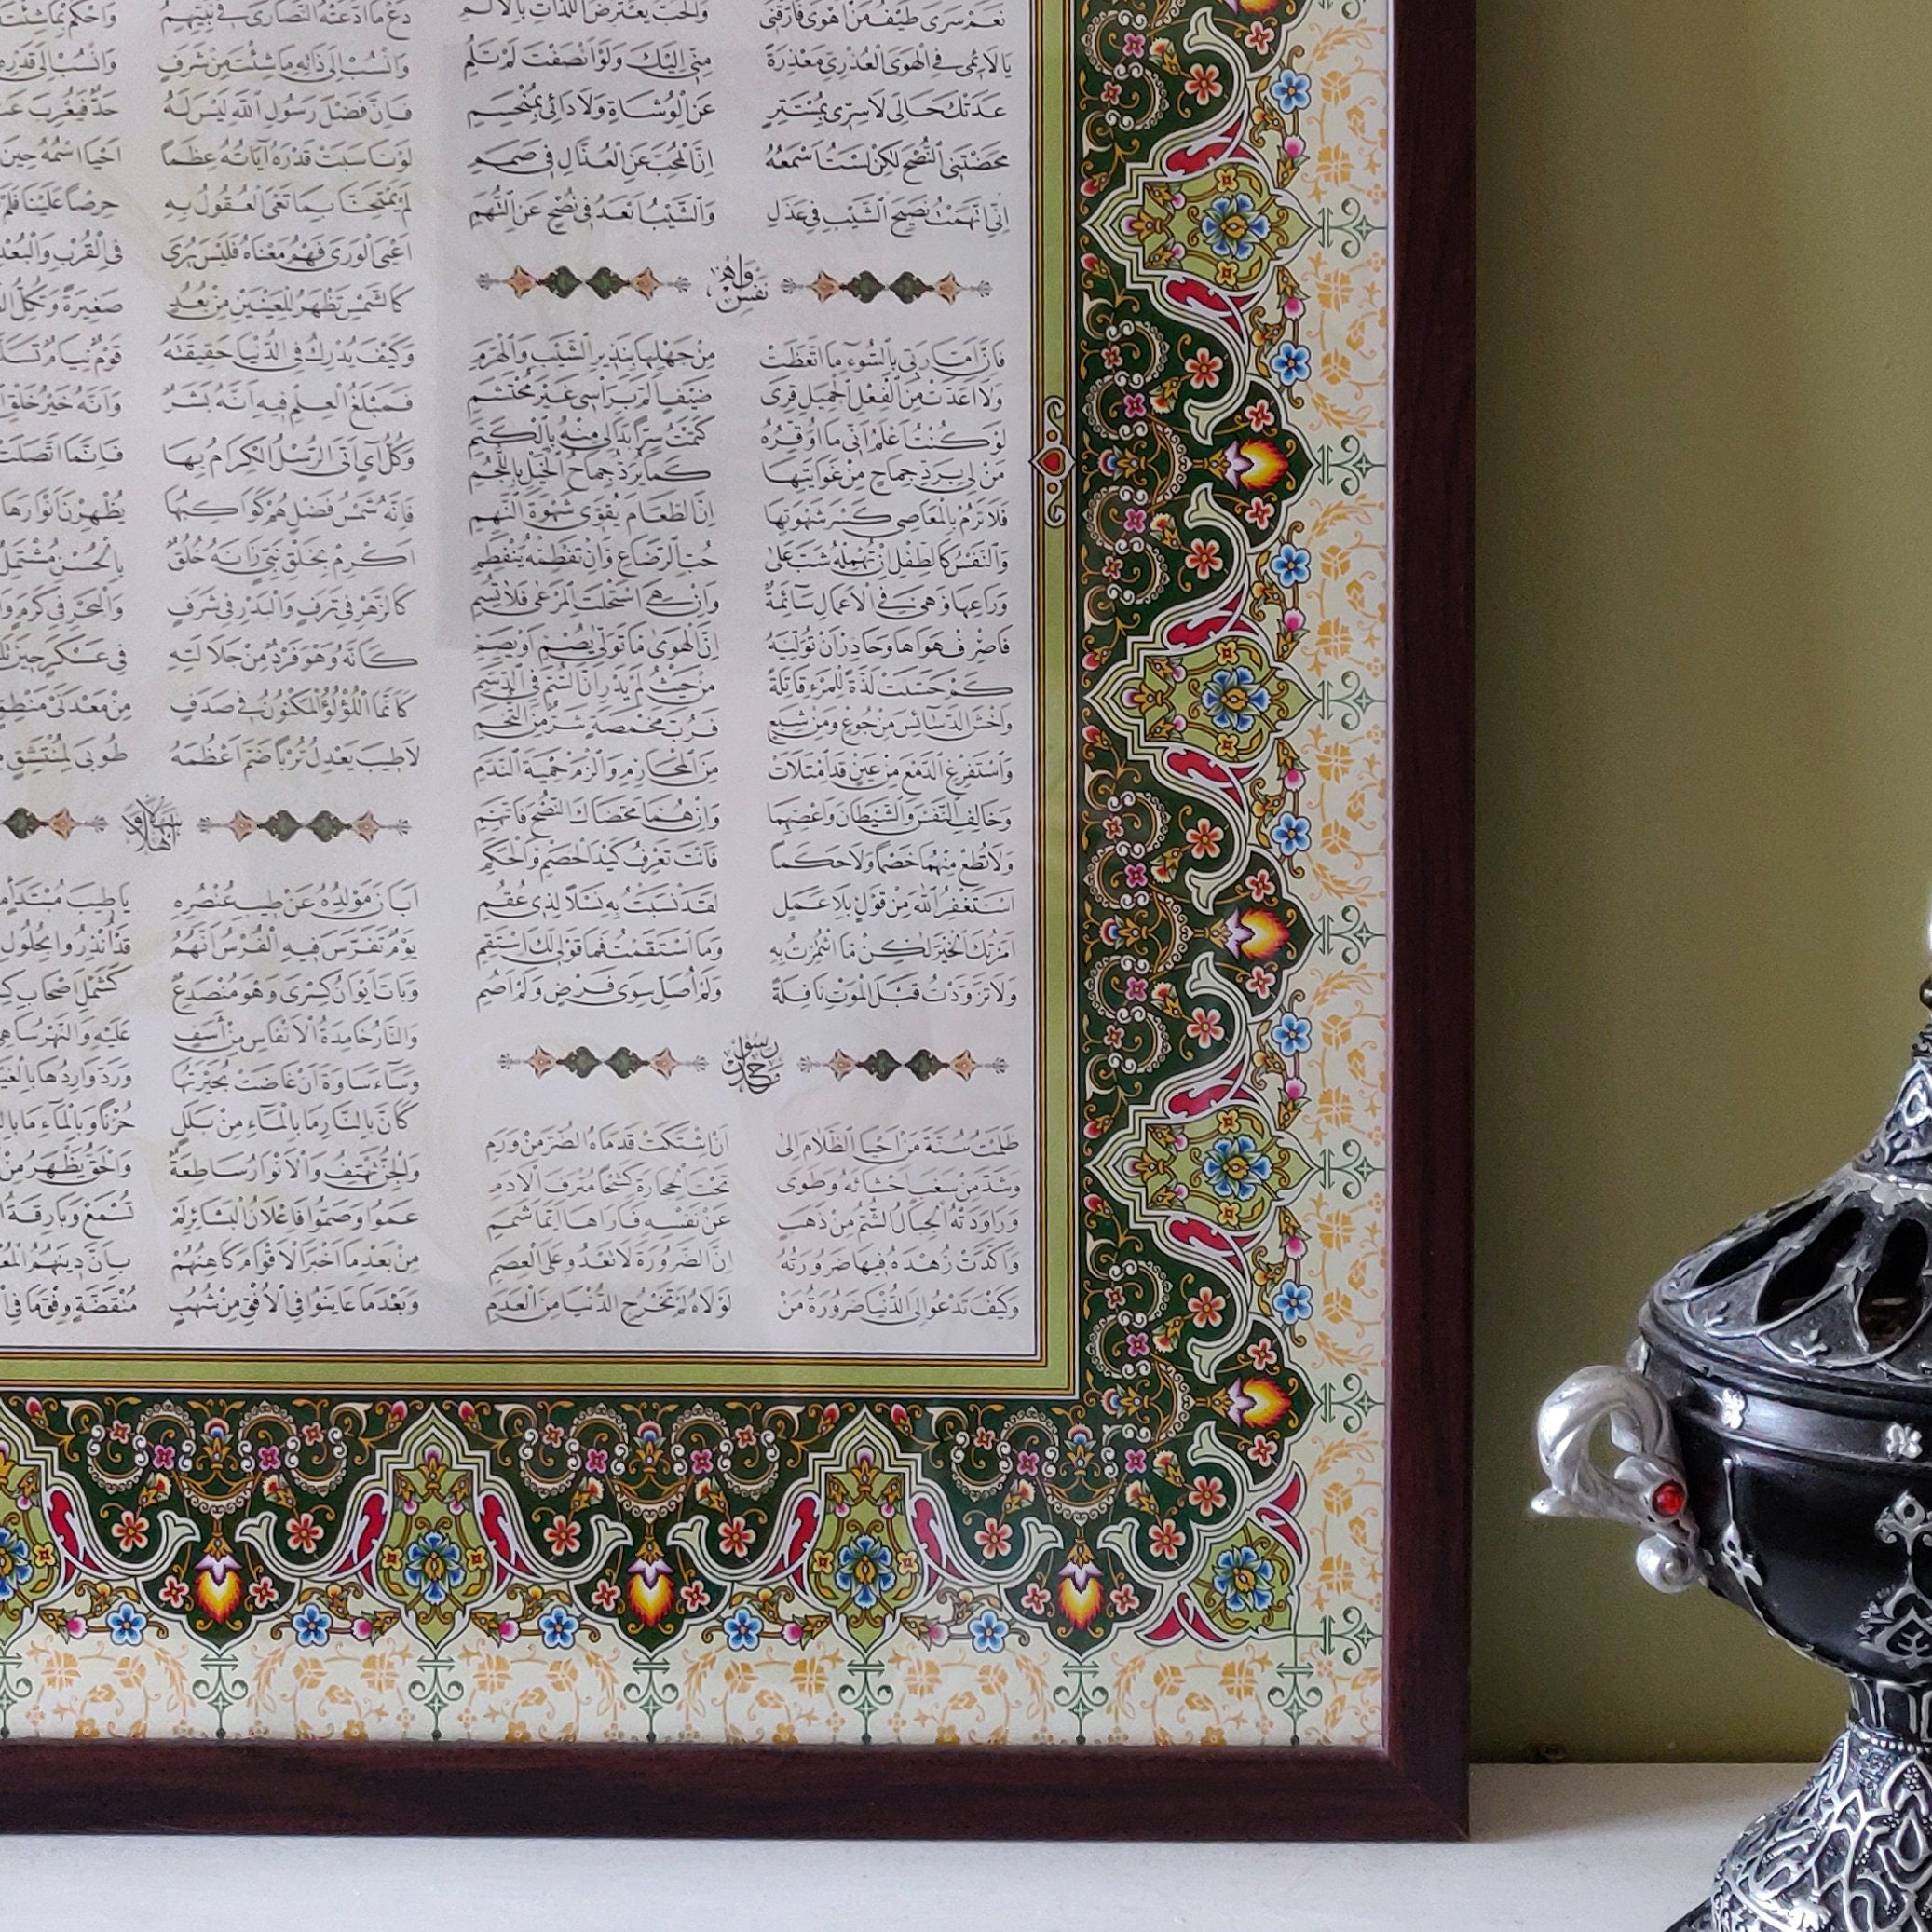 نَعَمْ سَرَى طَيْفُ مَنْ اَهْوَى فَاَرَّقَنِي وَالْحُبُّ يَعْتَرِضُ اللَّذَّاتِ بِالْاَلَمِ
يَا لَائِمِي فِي الْهَوَى الْعُذْرِيِّ مَعْذِرَةً مِنِّي اِلَيْكَ وَلَوْ اَنْصَفْتَ لَمْ تَلُمِ
عَدَتْكَ حَالِيَ لَا سِرِّي بِمُسْتَتِرٍ عَنِ الْوُشَاةِ وَلَا دَائِي بِمُنْحَسِمِ
مَحَضْتَنِي النُّصْحَ لٰكِنْ لَسْتُ اَسْمَعُهُ اِنَّ الْمُحِبَّ عَنِ الْعُذَّالِ فِي صَمَمِ
اِنِّي اتَّهَمْتُ نَصِيحَ الشَّيْبِ فِي عَذَلِي وَالشَّيْبُ اَبْعَدُ فِي نُصْحٍ عَنِ التُّهَمِ
نَفْس وَاهْ
فَاِنَّ اَمَّارَتِي بِالسُّوءِ مَا اتَّعَظَتْ مِنْ جَهْلِهَا بِنَذِيرِ الشَّيْبِ وَالْهَرَمِ
وَلَا اَعَدَّتْ مِنَ الْفِعْلِ الْجَمِيلِ قِرَى ضَيْفٍ اَلَمَّ بِرَأْسِي غَيْرَ مُحْتَشِمِ
لَوْ كُنْتُ اَعْلَمُ اَنِّي مَا اُوَقِّرُهُ كَتَمْتُ سِرًّا بَدَا لِي مِنْهُ بِالْكَتَمِ
مَنْ لِي بِرَدِّ جِمَاحٍ مِنْ غَوَايَتِهَا كَمَا يُرَدُّ جِمَاحُ الْخَيْلِ بِاللُّجُمِ
فَلَا تَرُمْ بِالْمَعَاصِي كَسْرَ شَهْوَتِهَا اِنَّ الطَّعَامَ يُقَوِّي شَهْوَةَ النَّهِمِ
وَالنَّفْسُ كَالطِّفْلِ اِنْ تُهْمِلْهُ شَبَّ عَلَى حُبِّ الرَّضَاعِ وَاِنْ تَفْطِمْهُ يَنْفَطِمِ
وَرَاعِهَا وَهِيَ فِي الْاَعْمَالِ سَائِمَةٌ وَاِنْ هِيَ اسْتَحْلَتِ الْمَرْعَى فَلَا تُسِمِ
فَاصْرِفْ هَوَاهَا وَحَاذِرْ اَنْ تُوَلِّيَهُ اِنَّ الْهَوَى مَا تَوَلَّى يُصْمِ اَوْ يَصِمِ
كَمْ حَسَّنَتْ لَذَّةً لِلْمَرْءِ قَاتِلَةً مِنْ حَيْثُ لَمْ يَدْرِ اَنَّ السُّمَّ فِي الدَّسَمِ
وَاخْشَ الدَّسَائِسَ مِنْ جُوعٍ وَمِنْ شِبَعٍ فَرُبَّ مَخْمَصَةٍ شَرٌّ مِنَ التُّخَمِ
وَاسْتَفْرِغِ الدَّمْعَ مِنْ عَيْنٍ قَدِ امْتَلَاَتْ مِنَ الْمَحَارِمِ وَالْزَمْ حِمْيَةَ النَّدَمِ
وَخَالِفِ النَّفْسَ وَالشَّيْطَانَ وَاعْصِهِمَا وَاِنْ هُمَا مَحَضَاكَ النُّصْحَ فَاتَّهِمِ
وَلَا تُطِعْ مِنْهُمَا خَصْمًا وَلَا حَكَمًا فَاَنْتَ تَعْرِفُ كَيْدَ الْخَصْمِ وَالْحَكَمِ
اَسْتَغْفِرُ اللهَ مِنْ قَوْلٍ بِلَا عَمَلٍ لَقَدْ نَسَبْتُ بِهِ نَسْلًا لِذِي عُقُمِ
اَمَرْتُكَ الْخَيْرَ لٰكِنْ مَا ائْتَمَرْتُ بِهِ وَمَا اسْتَقَمْتُ فَمَا قَوْلِي لَكَ اسْتَقِمِ
وَلَا تَزَوَّدْتُ قَبْلَ الْمَوْتِ نَافِلَةً وَلَمْ اُصَلِّ سِوَى فَرْضٍ وَلَمْ اَصُمِ
ظَلَمْتُ سُنَّةَ مَنْ اَحْيَا الظَّلَامَ اِلَى اَنِ اشْتَكَتْ قَدَمَاهُ الضُّرَّ مِنْ وَرَمِ
وَشَدَّ مِنْ سَغَبٍ اَحْشَاءَهُ وَطَوَى تَحْتَ الْحِجَارَةِ كَشْحًا مُتْرَفَ الْاَدَمِ
وَرَاوَدَتْهُ الْجِبَالُ الشُّمُّ مِنْ ذَهَبٍ عَنْ نَفْسِهِ فَاَرَاهَا اَيَّمَا شَمَمِ
وَاَكَّدَتْ زُهْدَهُ فِيهَا ضَرُورَتُهُ اِنَّ الضَّرُورَةَ لَا تَعْدُو عَلَى الْعِصَمِ
وَكَيْفَ تَدْعُو اِلَى الدُّنْيَا ضَرُورَةُ مَنْ لَوْلَاهُ لَمْ تَخْرُجِ الدُّنْيَا مِنَ الْعَدَمِ
دَعْ مَا ادَّعَتْهُ النَّصَارَى فِي نَبِيِّهِمُ وَاحْكُمْ بِمَا شِئْتَ
وَانْسُبْ اِلَى ذَاتِهِ مَا شِئْتَ مِنْ شَرَفٍ وَانْسُبْ اِلَى قَدْرِهِ
فَاِنَّ فَضْلَ رَسُولِ اللهِ لَيْسَ لَهُ حَدٌّ فَيُعْرِبَ
لَوْ نَاسَبَتْ قَدْرَهُ آيَاتُهُ عِظَمًا اَحْيَا اسْمُهُ حِينَ
لَمْ يَمْتَحِنَّا بِمَا تَعْيَى الْعُقُولُ بِهِ حِرْصًا عَلَيْنَا فَلَمْ
اَعْيَى الْوَرَى فَهْمُ مَعْنَاهُ فَلَيْسَ يُرَى فِي الْقُرْبِ وَالْبُعْدِ
كَالشَّمْسِ تَظْهَرُ لِلْعَيْنَيْنِ مِنْ بُعُدٍ صَغِيرَةً وَتُكِلُّ
وَكَيْفَ يُدْرِكُ فِي الدُّنْيَا حَقِيقَتَهُ قَوْمٌ نِيَامٌ
فَمَبْلَغُ الْعِلْمِ فِيهِ اَنَّهُ بَشَرٌ وَاَنَّهُ خَيْرُ خَلْقِ
وَكُلُّ آيٍ اَتَى الرُّسْلُ الْكِرَامُ بِهَا فَاِنَّمَا اتَّصَلَتْ
فَاِنَّهُ شَمْسُ فَضْلٍ هُمْ كَوَاكِبُهَا يُظْهِرْنَ اَنْوَارَهَا
اَكْرِمْ بِخَلْقِ نَبِيٍّ زَانَهُ خُلُقٌ بِالْحُسْنِ مُشْتَمِلٍ
كَالزَّهْرِ فِي تَرَفٍ وَالْبَدْرِ فِي شَرَفٍ وَالْبَحْرِ فِي كَرَمٍ
كَاَنَّهُ وَهُوَ فَرْدٌ مِنْ جَلَالَتِهِ فِي عَسْكَرٍ حِينَ
كَاَنَّمَا اللُّؤْلُؤُ الْمَكْنُونُ فِي صَدَفٍ مِنْ مَعْدِنَيْ مَنْطِقٍ
لَا طِيبَ يَعْدِلُ تُرْبًا ضَمَّ اَعْظُمَهُ طُوبَى لِمُنْتَشِقٍ
اَبَانَ مَوْلِدُهُ عَنْ طِيبِ عُنْصُرِهِ يَا طِيبَ مُبْتَدَأٍ
يَوْمٌ تَفَرَّسَ فِيهِ الْفُرْسُ اَنَّهُمُ قَدْ اُنْذِرُوا بِحُلُولِ
وَبَاتَ اِيوَانُ كِسْرَى وَهُوَ مُنْصَدِعٌ كَشَمْلِ اَصْحَابِ
وَالنَّارُ خَامِدَةُ الْاَنْفَاسِ مِنْ اَسَفٍ عَلَيْهِ وَالنَّهْرُ سَاهِي
وَسَاءَ سَاوَةَ اَنْ غَاضَتْ بُحَيْرَتُهَا وَرُدَّ وَارِدُهَا
كَاَنَّ بِالنَّارِ مَا بِالْمَاءِ مِنْ بَلَلٍ حُزْنًا وَبِالْمَاءِ مَا
وَالْجِنُّ تَهْتِفُ وَالْاَنْوَارُ سَاطِعَةٌ وَالْحَقُّ يَظْهَرُ مِنْ
عَمُوا وَصَمُّوا فَاِعْلَانُ الْبَشَائِرِ لَمْ تُسْمَعْ وَبَارِقَةُ
مِنْ بَعْدِ مَا اَخْبَرَ الْاَقْوَامَ كَاهِنُهُمْ بِاَنَّ دِينَهُمُ
وَبَعْدَ مَا عَايَنُوا فِي الْاُفْقِ مِنْ شُهُبٍ مُنْقَضَّةٍ وِفْقَ مَا فِي